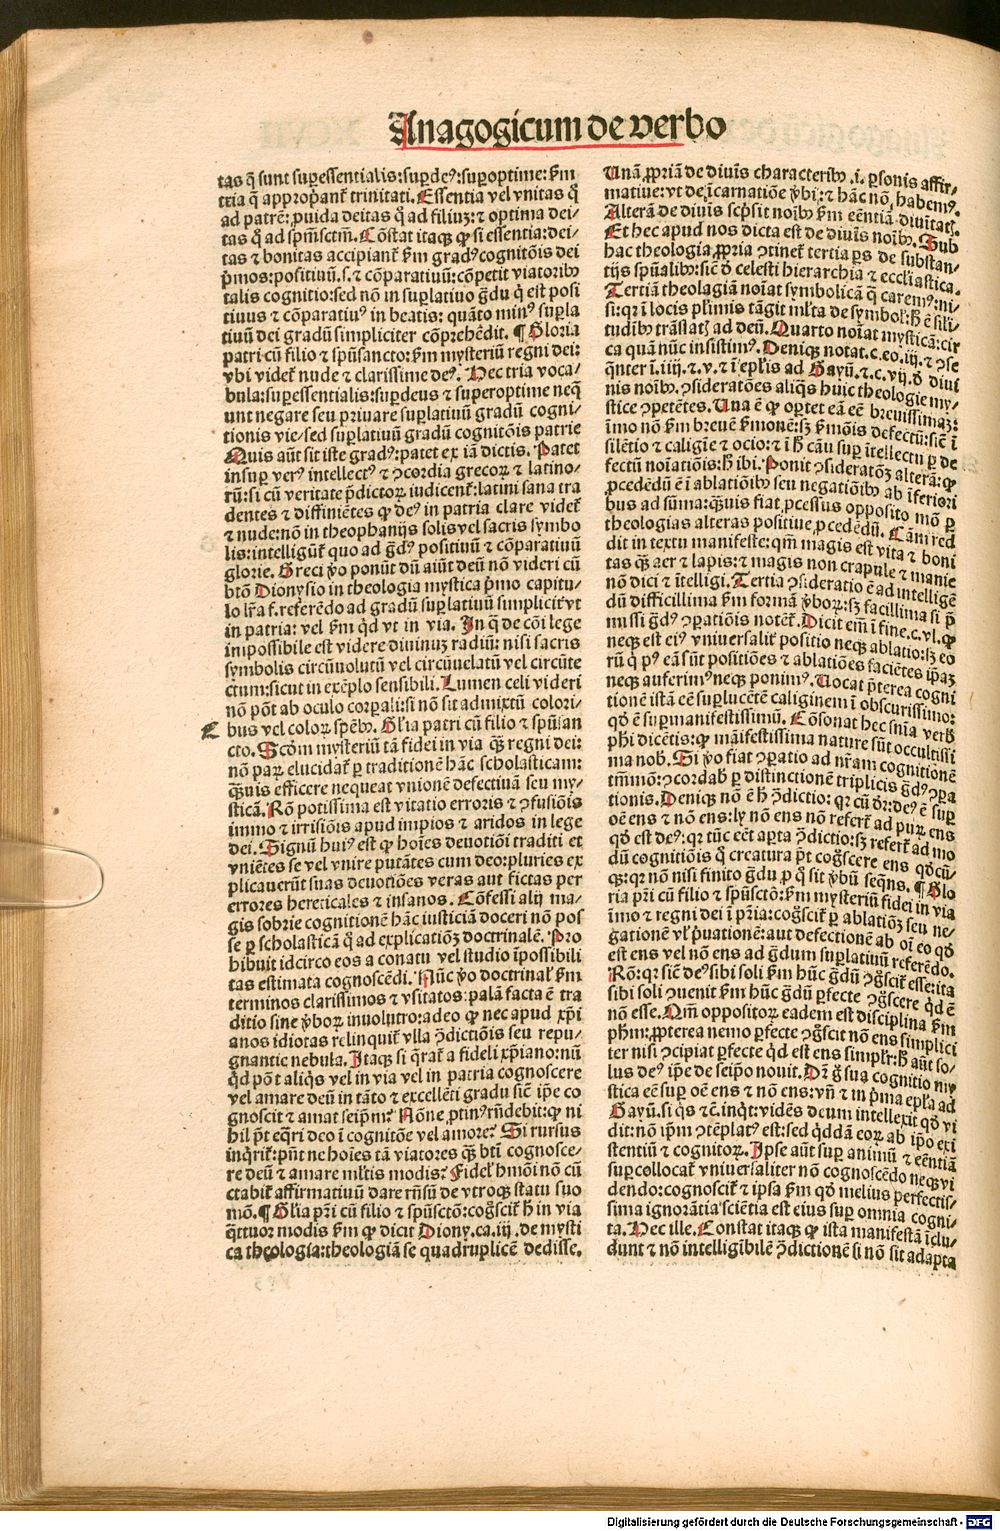 Anagogicum de verbo
tas q̄ sunt suꝑessentialis:suꝑdeꝰ:suꝑoptime:ẜm
tria q̄ approp̄ant̄ trinitati. Essentia vel vnitas q̊
ad patrē:ꝓuida deitas q̊ ad filiuꝫ:⁊ optima dei-
tas q̊ ad spm̄sctm̄. Cōstat itaqꝫ ꝙ si essentia:dei-
tas ⁊ bonitas accipiant̄ ẜm gradꝰ cognitōis dei
p̄mos:positiuū.s.⁊ cōparatiuū:cōpetit viatoribꝫ
talis cognitio:sed nō in suꝑlatiuo g̊du q̇ est posi
tiuus ⁊ cōparatiuꝰ in beatis: quāto minꝰ suꝑla
tiuū dei gradū simpliciter cōprehēdit. ¶ Gloria
patri cū filio ⁊ spūsancto:ẜm mysteriū regni dei:
vbi videt̄ nude ⁊ clarissime deꝰ. Hec tria voca-
bula:suꝑessentialis:suꝑdeus ⁊ superoptime neqꝫ
unt negare seu priuare suꝑlatiuū gradū cogni-
tionis vie/sed suꝑlatiuū gradū cognitōis patrie
Quis aūt sit iste gradꝰ:patet ex iā dictis. Patet
insuꝑ verꝰ intellectꝰ ⁊ ↄcordia grecoꝝ ⁊ latino-
rū:si cū veritate p̄dictoꝝ iudicent̄:latini sana tra
dentes ⁊ diffiniētes ꝙ deꝰ in patria clare videt̄
⁊ nude:nō in theophanijs solis vel sacris symbo
lis:intelligūt̄ quo ad g̊dꝰ positiuū ⁊ cōparatiuū
glorie. Greci ꝟo ponūt dū aiūt deū nō videri cū
btō Dionysio in theologia mystica p̄mo capitu-
lo lr̄a f.referēdo ad gradū suꝑlatiuū simplicit̄ vt
in patria: vel ẜm q̇d vt in via. In q̄ de cōi lege
impossibile est videre diuinuꝫ radiū: nisi sacris
symbolis circūuolutū vel circūuelatū vel circūte
ctum:sicut in exēplo sensibili. Lumen celi videri
nō pōt ab oculo corꝑali:si nō sit admixtū colori-
bus vel coloꝝ spēbꝫ. Gl̄ia patri cū filio ⁊ spūsan
cto. Scd̄m mysteriū tā fidei in via q̄ꝫ regni dei:
nō paꝝ elucidat̄ ꝑ traditionē hāc scholasticam:
q̄ꝫuis efficere nequeat vnionē defectiuā seu my-
sticā. Rō potissima est vitatio erroris ⁊ ↄfusiōis
immo ⁊ irrisiōis apud impios ⁊ aridos in lege
dei. Signū huiꝰ est ꝙ hoīes deuotiōi traditi et
vniētes se vel vnire putātes cum deo:pluries ex
plicauerūt suas deuotiōes veras aut fictas per
errores hereticales ⁊ insanos. Cōfessi alij ma-
gis sobrie cognitionē hāc iusticiā doceri nō pos
se ꝑ scholasticā q̊ ad explicatiōꝫ doctrinalē. Pro
hibuit idcirco eos a conatu vel studio īpossibili
tas estimata cognoscēdi. Nūc ꝟo doctrinal̄ ẜm
terminos clarissimos ⁊ vsitatos: palā facta ē tra
ditio sine ꝟboꝝ inuolutro:adeo ꝙ nec apud xp̄i
anos idiotas relinquit̄ vlla ↄ̄dictiōis seu repu-
gnantie nebula. Itaqꝫ si q̄rat̄ a fideli xp̄iano:nū
q̇d pōt aliq̇s vel in via vel in patria cognoscere
vel amare deū in tāto ⁊ excellēti gradu sic̄ ip̄e co
gnoscit ⁊ amat seip̄m? Nōne ꝓtinꝰ rn̄debit:ꝙ ni
hil p̄t eq̄ri deo ī cognitōe vel amore? Si rursus
inq̇rit̄:pn̄t ne hoīes tā viatores q̄ꝫ bt̄i cognosce-
re deū ⁊ amare ml̄tis modis? Fidel̄ hm̄oi nō cū
ctabit̄ affirmatiuū dare rn̄sū de vtroqꝫ statu suo
mō. ¶ Gl̄ia pr̄i cū filio ⁊ spūsctō:cog̊scit̄ h̄ in via
q̄ttuor modis ẜm ꝙ dicit Diony.ca.iij.de mysti
ca theologia:theologiā se quadruplicē dedisse.
Unā ꝓpriā de diuīs characteribꝫ .i. ꝑsonis affir-
matiue:vt de īcarnatiōe ꝟbi:⁊ hāc nō habemꝰ.
Alterā de diuīs scp̄sit noībꝫ ẜm eēntiā diuītatꝭ.
Et hec apud nos dicta est de diuīs noībꝫ. Sub
hac theologia ꝓpria ↄtinet̄ tertia ꝑs de substan-
tijs spūalibꝫ:sic̄ ē celesti hierarchia ⁊ eccl̄iastica.
Tertiā theologiā noīat symbolicā q̄ caremꝰ:ni-
si:qꝛ ī locis pl̄imis tāgit ml̄ta de symbol̄:h̄ ē sili-
tudībꝫ trāslatꝭ ad deū. Quarto noīat mysticā:cir
ca quā nūc insistimꝰ. Deniqꝫ notat.c.eo.iij.⁊ ↄse
q̄nter i.iiij.⁊.v.⁊ ī epl̄is ad Gayū.⁊.c.vij.ō diuī
nis noībꝫ. ↄsideratōes aliq̄s huic theologie my-
stice ↄpetētes. Una ē ꝙ oꝑtet eā eē breuissimaꝫ:
īmo nō ẜm breuē ẜmonē:sꝫ ẜmōis defectū:sic̄ ī
silētio ⁊ caligīe ⁊ ocio:⁊ ī h̄ cāu suꝑ ītellectu ꝑ de
fectū noīatiōis:h̄ ibi. Ponit ↄsideratōꝫ alterā:ꝙ
ꝓcedēdū ē ī ablatiōibꝫ seu negatiōibꝫ ab īferiori
bus ad sūma:q̄ꝫuis fiat ꝓcessus opposito mō ꝑ
theologias alteras positiue ꝓcedēdū. Cām red
dit in textu manifeste:qm̄ magis est vita ⁊ boni
tas q̄ꝫ aer ⁊ lapis:⁊ magis non crapule ⁊ manie
nō dici ⁊ ītelligi. Tertia ↄsideratio ē ad intelligē
dū difficillima ẜm formā ꝟboꝝ:sꝫ facillima si p̄
missi g̊dꝰ ↄꝑatiōis notēt̄. Dicit em̄ ī fine.c.vl.ꝙ
neqꝫ est eiꝰ vniuersalit̄ positio neqꝫ ablatio:sꝫ eo
rū q̄ pꝰ eā sūt positiōes ⁊ ablatiōes faciētes ip̄aꝫ
neqꝫ auferimꝰ neqꝫ ponimꝰ. Uocat p̄terea cogni
tionē istā eē suꝑlucētē caliginem ī obscurissimo:
qd̄ ē suꝑmanifestissimū. Cōsonat hec sn̄ia verb
ph̄i dicētis:ꝙ māifestissima nature sūt occultissi
ma nob̄. Si ꝟo fiat ↄꝑatio ad nr̄am cognitionē
tm̄mō:ↄcordab̄ ꝑ distinctionē triplicis g̊dꝰ ↄꝑa
tionis. Deniqꝫ nō ē h̄ ↄ̄dictio: qꝛ cū dr̄:deꝰ ē suꝑ
oē ens ⁊ nō ens:ly nō ens nō refert̄ ad puꝝ ens
qd̄ est deꝰ:qꝛ tūc eēt aꝑta ↄ̄dictio:sꝫ refert̄ ad mo
dū cognitiōis q̊ creatura p̄t cog̊scere ens qd̄cū-
qꝫ:qꝛ nō nisi finito g̊du ꝓ q̊ sit ꝟbū seq̄ns. ¶ Glo
ria pr̄i cū filio ⁊ spūsctō:ẜm mysteriū fidei in via
īmo ⁊ regni dei ī pr̄ia:cog̊scit̄ ꝑ ablatiōꝫ seu ne-
gationē vl̄ p̄uationē:aut defectionē ab oī eo qd̄
est ens vel nō ens ad g̊dum suꝑlatiuū referēdo.
Rō:qꝛ sic̄ deꝰ sibi soli ẜm hūc g̊dū ↄg̊scit̄ esse:ita
sibi soli ↄuenit ẜm hūc g̊dū ꝑfecte ↄg̊scere q̇d ē
nō esse. Qm̄ oppositoꝝ eadem est disciplina ẜm
ph̄m:ꝓpterea nemo ꝑfecte ↄg̊scit nō ens simplici
ter nisi ↄcipiat ꝑfecte q̇d est ens simplr̄:h̄ aūt so-
lus deꝰ ip̄e de seip̄o nouit. Dr̄ g̊ sua cognitio my
stica eē suꝑ oē ens ⁊ nō ens:vn̄ ⁊ in p̄ma epl̄a ad
Gayū.si q̇s ⁊c̄.inq̇t:vidēs deum intellexit qd̄ vi
dit:nō ip̄m ↄtēplatꝰ est:sed q̇ddā eoꝝ ab ip̄o exi
stentiū ⁊ cognitoꝝ. Ipse aūt suꝑ animū ⁊ eēntiā
suꝑcollocat̄ vniuersaliter nō cognoscēdo neqꝫ vi
dendo:cognoscit̄ ⁊ ipsa ẜm qd̄ melius perfectis-
sima ignorātia/sciētia est eius suꝑ omnia cogni-
ta. Hec ille. Constat itaqꝫ ꝙ ista manifestā īclu-
dunt ⁊ nō intelligībilē ↄ̄dictionē si nō sit adapta
Digitalisierung gefördert durch die Deutsche Forschungsgemeinschaft - DFG